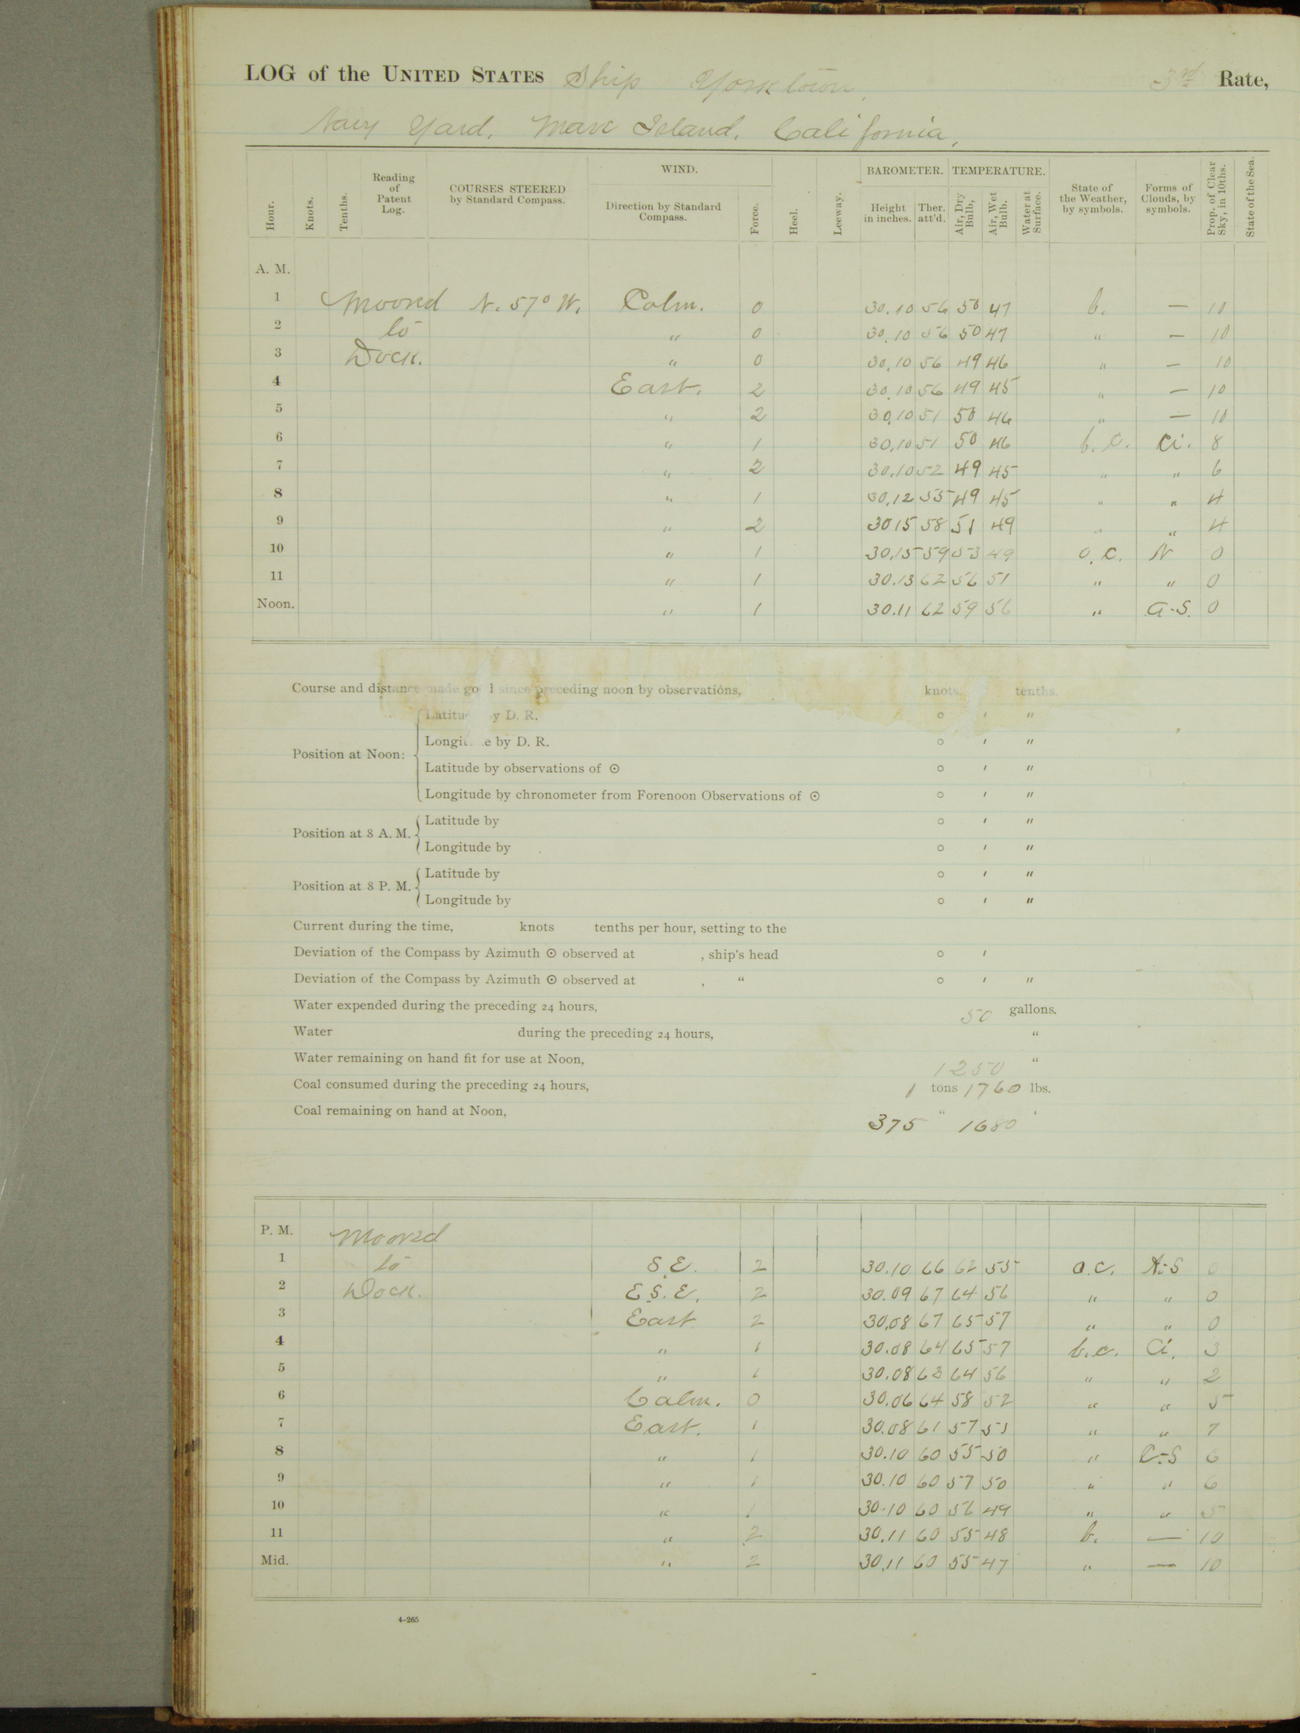 LOG of the UNITED STATES Ship Yorktown, 3rd Rate,
Navy Yard, Mare Island, California,
Hour. Knots. Tenths. Reading of Patent Log. COURSES STEERED by Standard Compass. WIND. Direction by Standard Compass. Force. Heel. Leeway. BAROMETER. Height in inches. Ther. att'd. TEMPERATURE. Air, Dry Bulb, Air, Wet Bulb. Water at Surface. State of the Weather, by symbols. Forms of Clouds, by symbols. Prop. of Clear Sky, in 10ths. State of the Sea.
A. M.
1 Moored N. 57° W. Calm. 0 30.10 56 50 47 b. — 10
2 to " 0 30.10 56 50 47 " — 10
3 Dock. " 0 30.10 56 49 46 " — 10
4 East. 2 30.10 56 49 45 " — 10
5 " 2 30.10 51 50 46 " — 10
6 " 1 30.10 51 50 46 b.c. Ci. 8
7 " 2 30.10 52 49 45 " " 6
8 " 1 30.12 55 49 45 " " 4
9 " 2 30 15 58 51 49 " " 4
10 " 1 30.15 59 53 49 o.c. N 0
11 " 1 30.13 62 56 51 " " 0
Noon. " 1 30.11 62 59 56 " a-S. 0
Course and distance made good since preceding noon by observations, knots, tenths.
Position at Noon: Latitude by D. R. ° ′ ″
Longitude by D. R. ° ′ ″
Latitude by observations of ☉ ° ′ ″
Longitude by chronometer from Forenoon Observations of ☉ ° ′ ″
Position at 8 A. M. Latitude by ° ′ ″
Longitude by ° ′ ″
Position at 8 P. M. Latitude by ° ′ ″
Longitude by ° ′ ″
Current during the time, knots tenths per hour, setting to the
Deviation of the Compass by Azimuth ☉ observed at , ship's head ° ′
Deviation of the Compass by Azimuth ☉ observed at , " ° ′ ″
Water expended during the preceding 24 hours, 50 gallons.
Water during the preceding 24 hours, "
Water remaining on hand fit for use at Noon, 1250 "
Coal consumed during the preceding 24 hours, 1 tons 1760 lbs.
Coal remaining on hand at Noon, 375 " 1680 "
P. M. Moored
1 to S.E. 2 30.10 66 62 55 o.c. A-S 0
2 Dock. E.S.E. 2 30.09 67 64 56 " " 0
3 East 2 30.08 67 65 57 " " 0
4 " 1 30.08 64 65 57 b.c. Ci. 3
5 " 1 30.08 63 64 56 " " 2
6 Calm. 0 30.06 64 58 52 " " 5
7 East. 1 30.08 61 57 51 " " 7
8 " 1 30.10 60 55 50 " C-S 6
9 " 1 30.10 60 57 50 " " 6
10 " 1 30.10 60 56 49 " " 5
11 " 2 30.11 60 55 48 b. — 10
Mid. " 2 30.11 60 55 47 " — 10
4-265